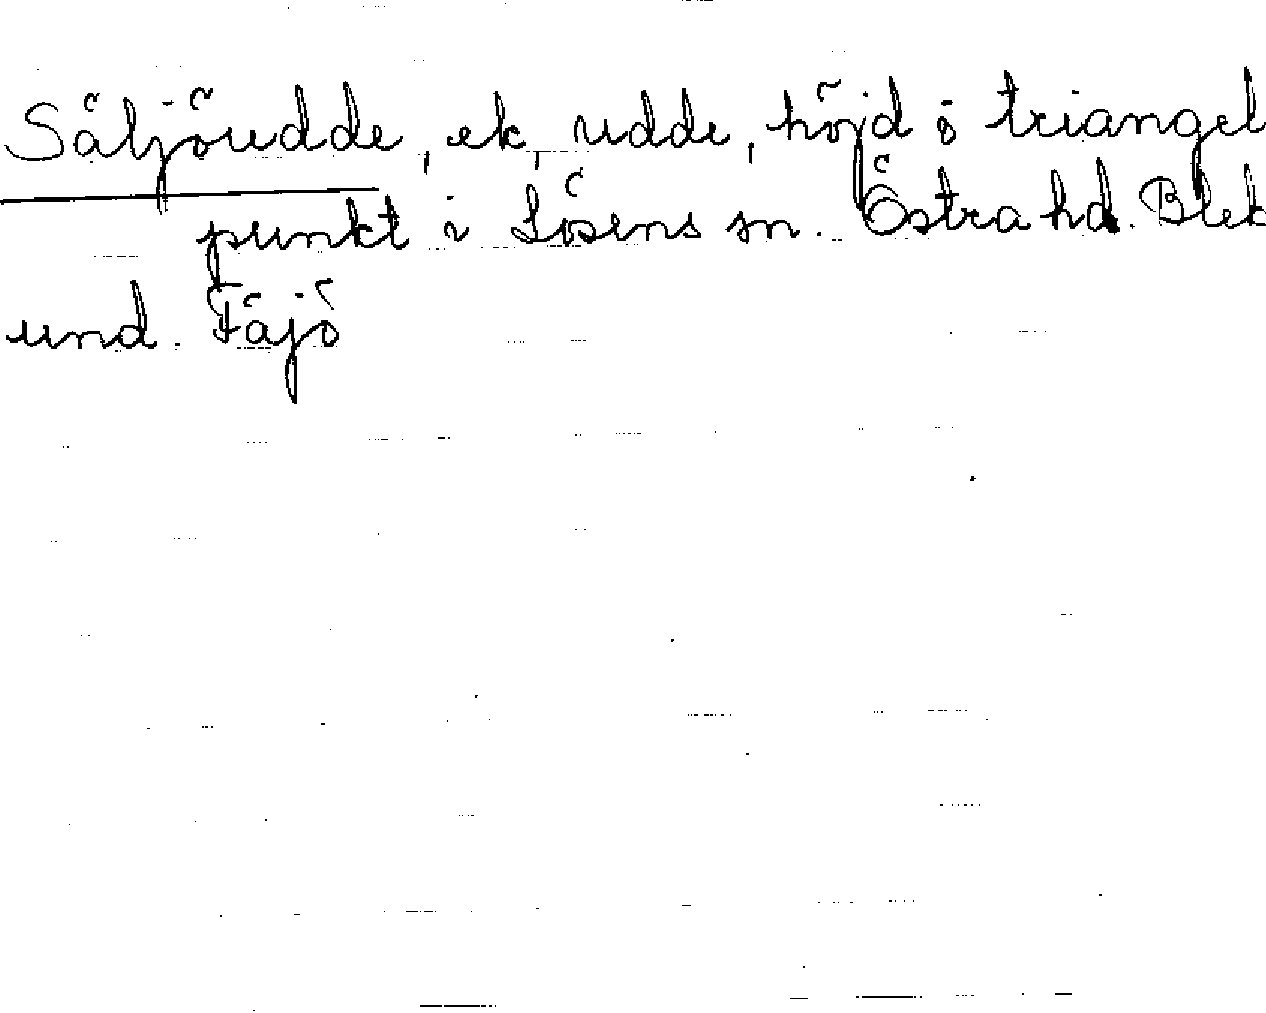 Säljöudde, ek, udde, höjd ö triangel
punkt i Lösens sn. Östra hd. Blek
und. Fäjö